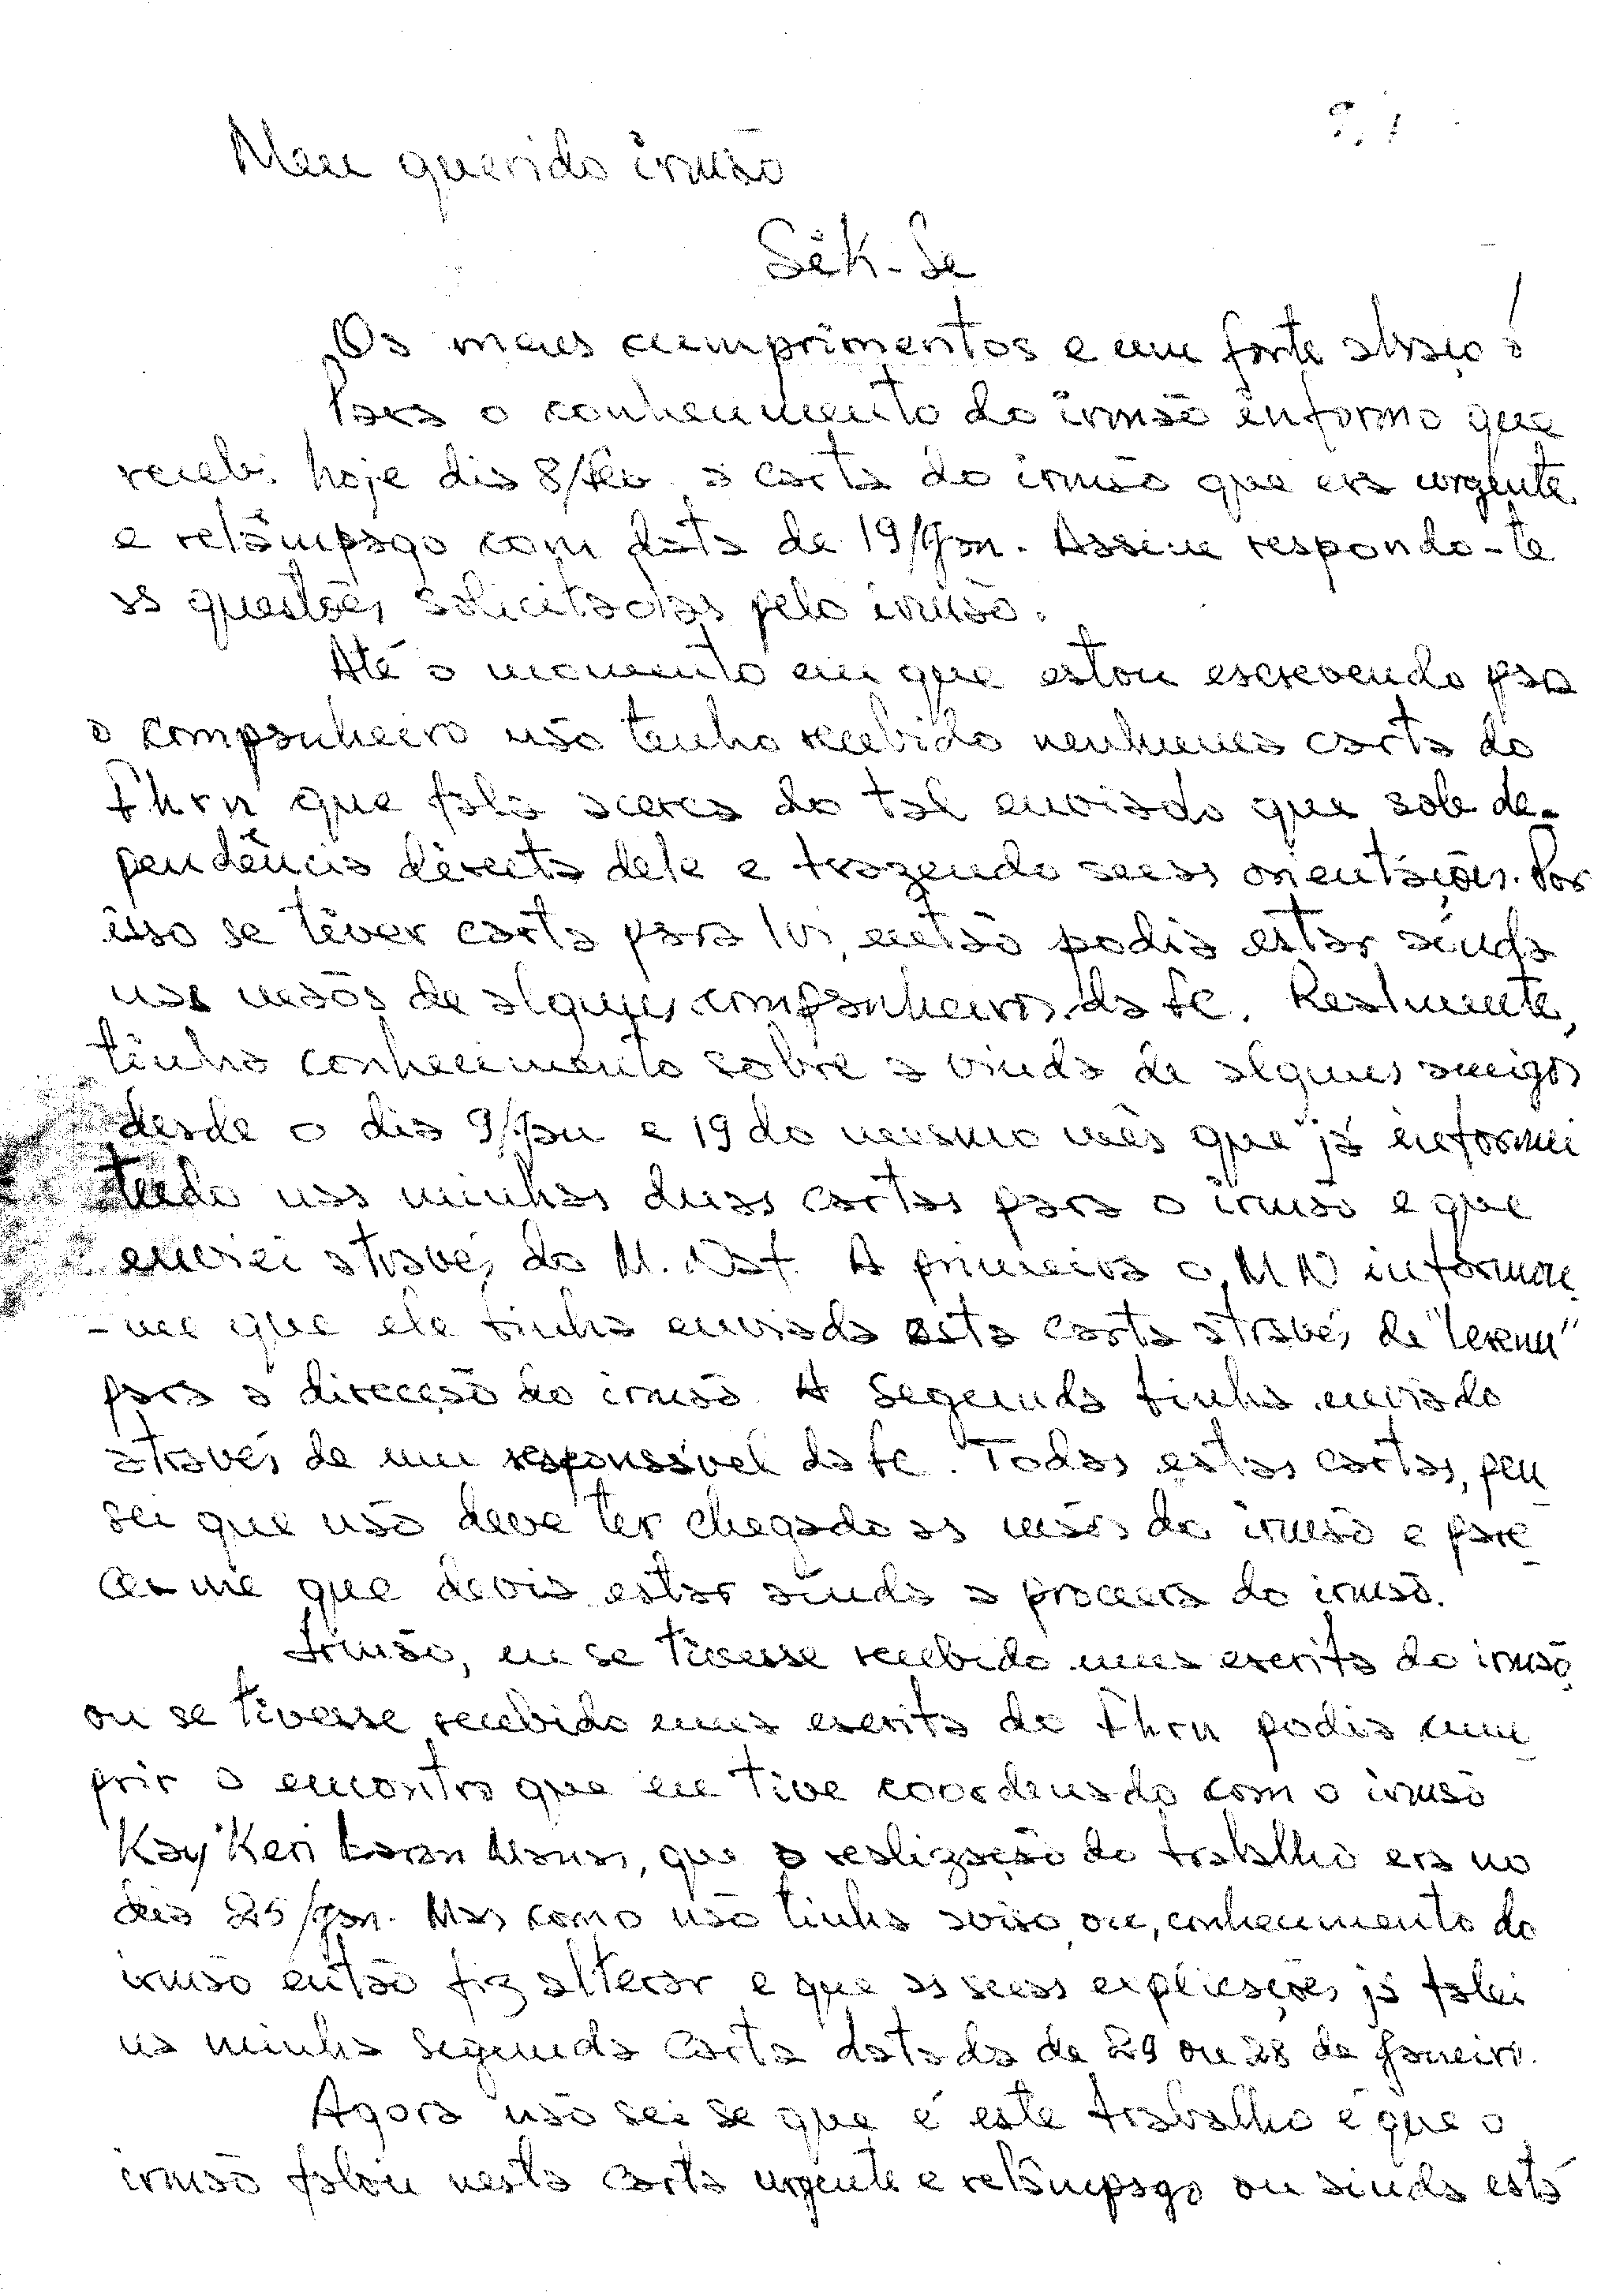 P. 1
Meu querido irmão
Sêk-Se
Os meus cumprimentos e um forte abraço!
Para o conhecimento do irmão informo que
recebi hoje dia 8/fev a carta do irmão que era urgente
e relâmpago com data de 19/Jan. Assim respondo-te
as questões solicitadas pelo irmão.
Até o momento em que estou escrevendo para
o companheiro não tenho recebido nenhuma carta do
Fhrn que fala acerca do tal enviado que sob de-
pendência directa dele e trazendo suas orientações. Por
isso se têver carta para então podia estar ainda
nas mãos de alguns companheiros da fc. Realmente,
tinha conhecimento sobre a vinda de alguns amigos
desde o dia 9/Jan e 19 do mesmo mês que já informei
tudo nas minhas duas cartas para o irmão e que
enviei através do M. Naf. A primeira o MN informou
-me que ele tinha enviado esta carta através de "Lerenu"
para a direcção do irmão. A segunda tinha enviado
através de um responsável da fc. Todas estas cartas, pen
sei que não deve ter chegado as mãos do irmão e pare
ce-me que devia estar ainda a procura do irmão.
Irmão, eu se tivesse recebido uma escrita do irmão
ou se tivesse recebido uma escrita do Fhrn podia cum
prir o encontro que eu tive coordenado com o irmão
Kay Keri Laran Manas, que a realização do trabalho era no
dia 25/Jan. Mas como não tinha aviso ou, conhecimento do
irmão então fiz alterar e que as suas explicações já falei
na minha segunda carta datada de 29 ou 28 de Janeiro.
Agora não sei se que é este trabalho é que o
irmão falou nesta carta urgente e relâmpago ou ainda está